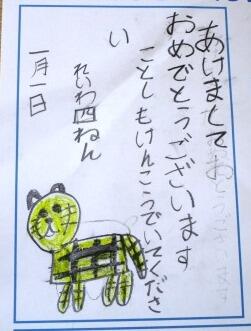 あけまして
おめでとうございます
ことしもけんこうでいてくださ
い
れいわ四ねん
一月一日